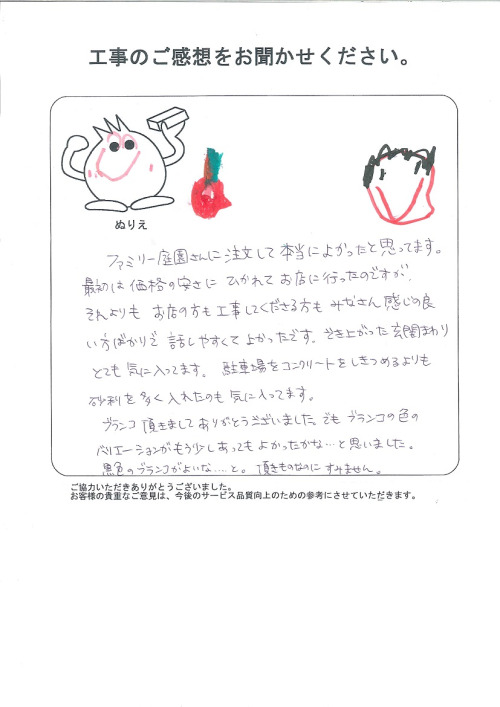 工事のご感想をお聞かせください。
ぬりえ
ファミリー庭園さんに注文して本当によかったと思ってます。
最初は価格の安さにひかれてお店に行ったのですが、
それよりもお店の方も工事してくださる方もみなさん感じの良
い方ばかりで話しやすくてよかったです。でき上がった玄関まわり
とても気に入ってます。駐車場をコンクリートをしきつめるよりも
砂利を多く入れたのも気に入ってます。
ブランコ頂きましてありがとうございました。でもブランコの色の
バリエーションがもう少しあってもよかったかな…と思いました。
黒色のブランコがよいな…と。頂きものなのにすみません。
ご協力いただきありがとうございました。
お客様の貴重なご意見は、今後のサービス品質向上のための参考にさせていただきます。